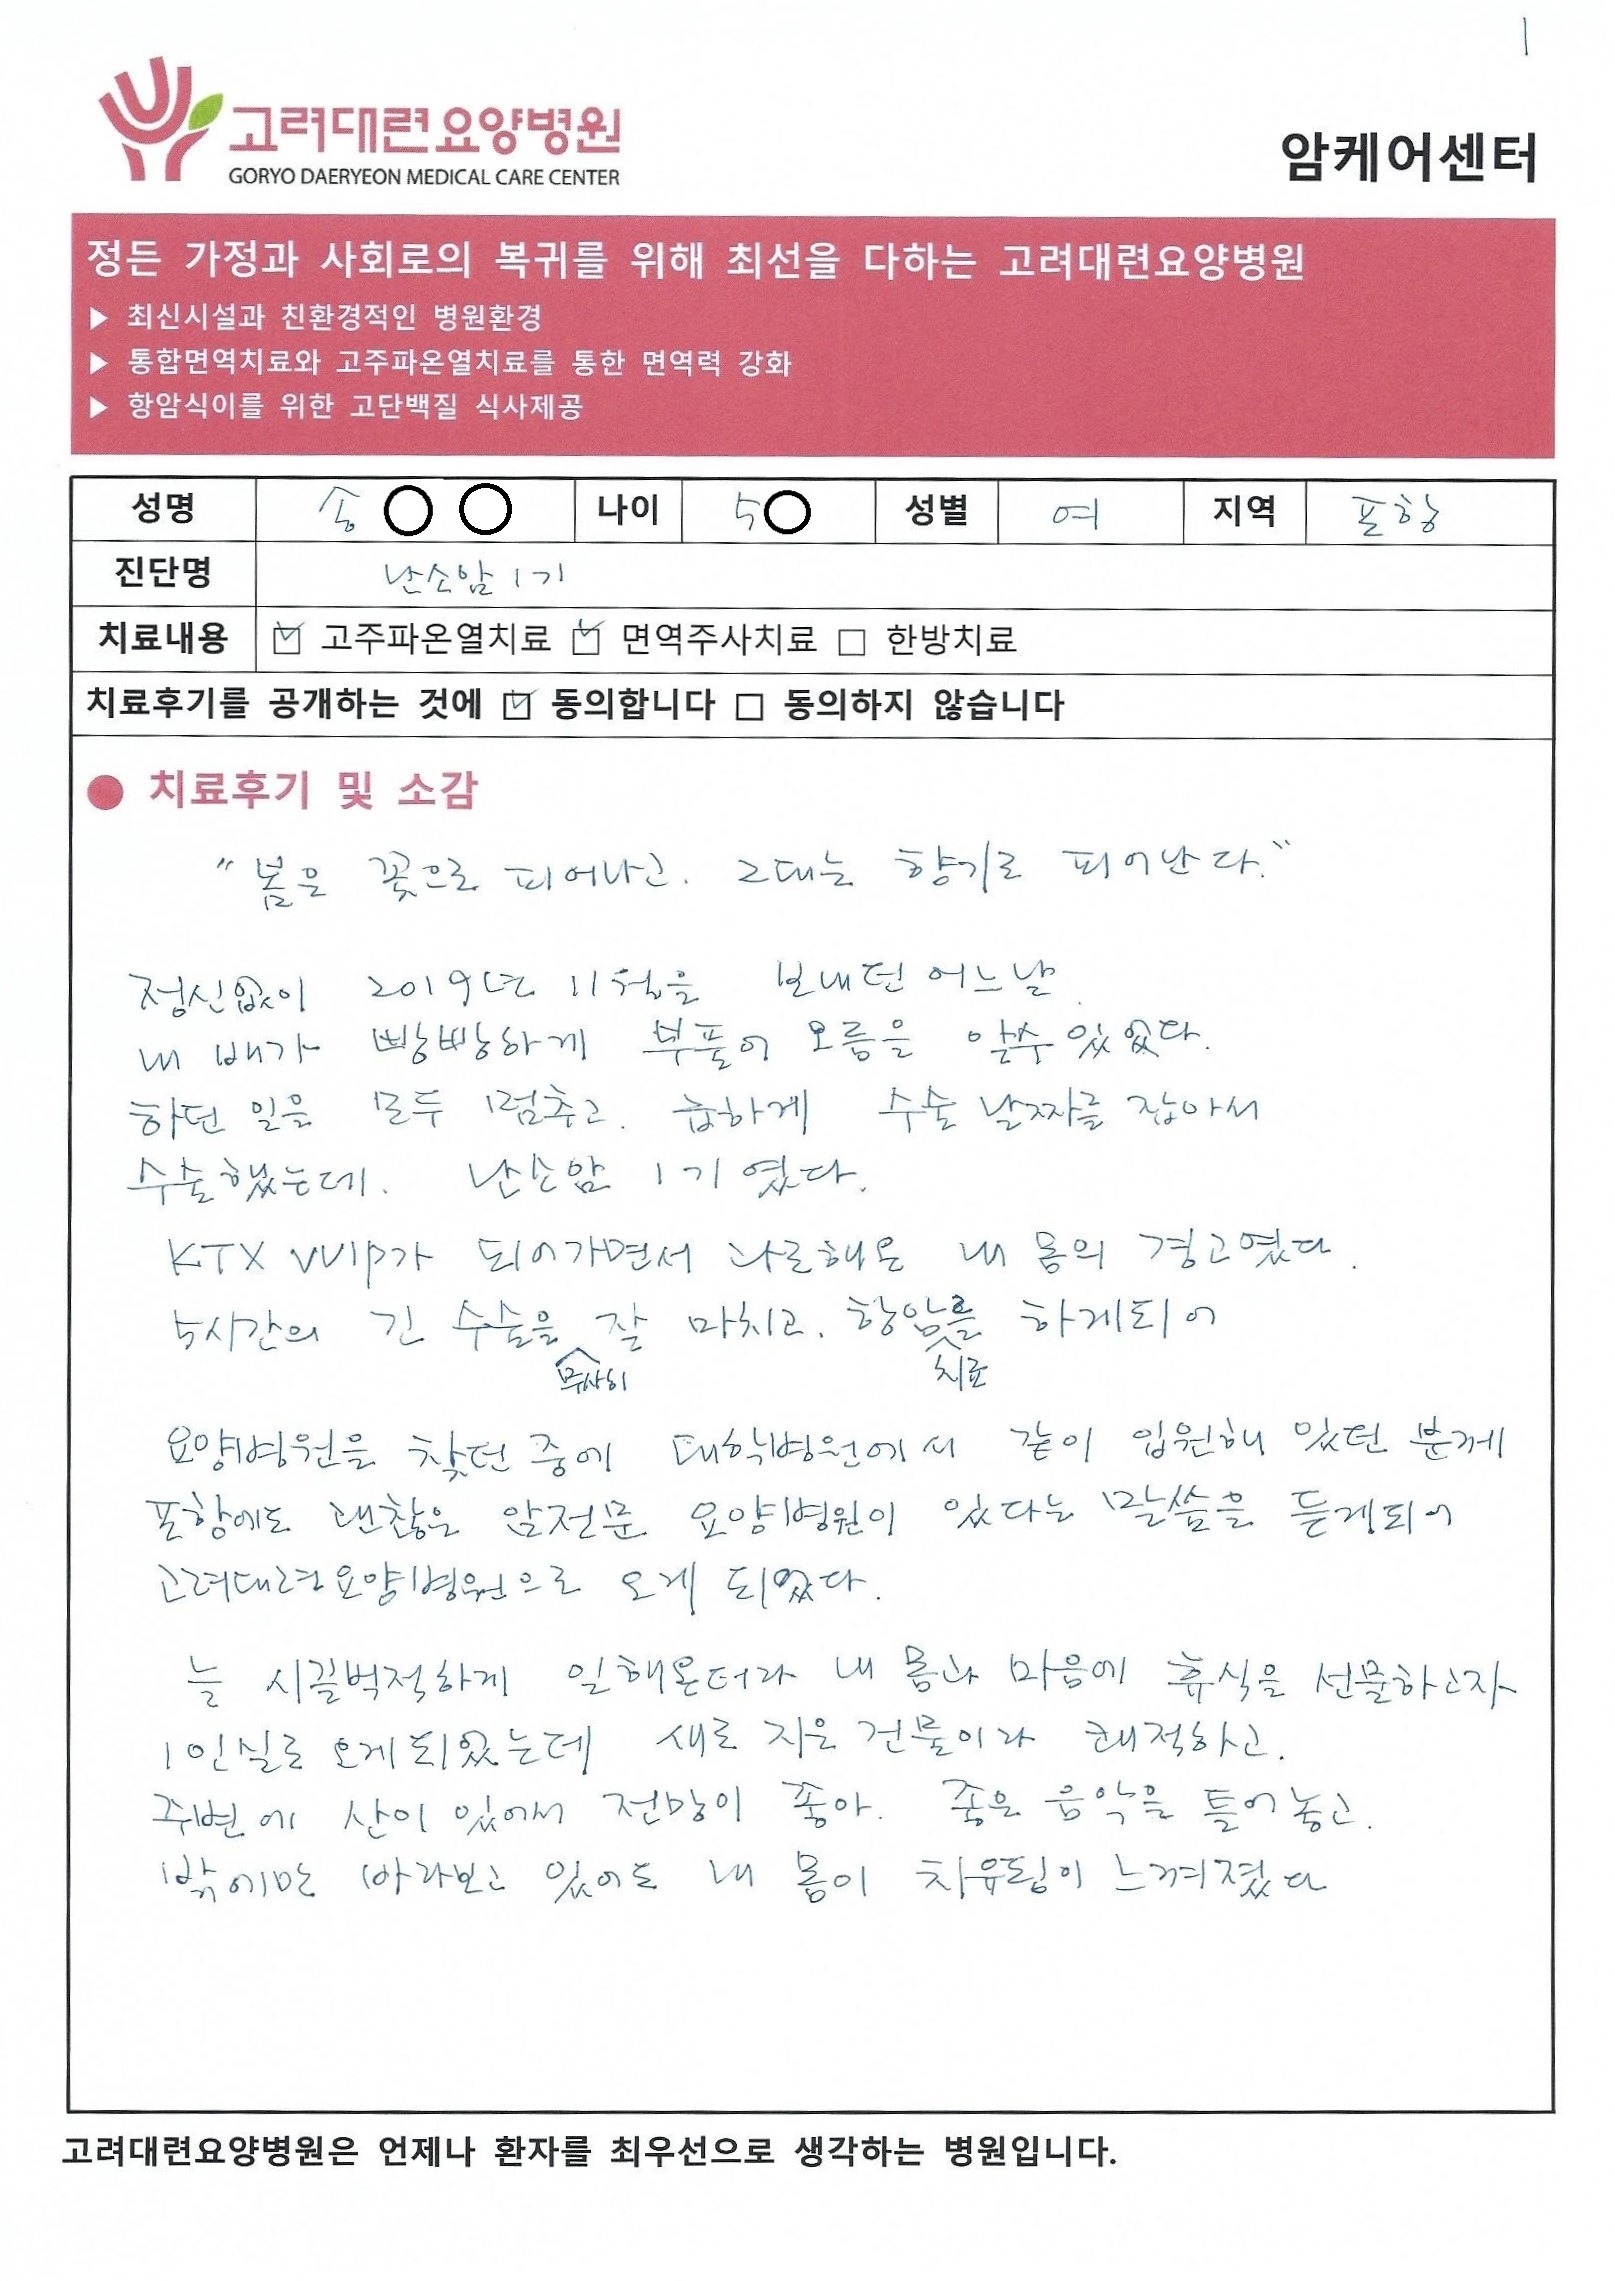 1
고려대련요양병원
GORYO DAERYEON MEDICAL CARE CENTER
암케어센터
정든 가정과 사회로의 복귀를 위해 최선을 다하는 고려대련요양병원
▶ 최신시설과 친환경적인 병원환경
▶ 통합면역치료와 고주파온열치료를 통한 면역력 강화
▶ 항암식이를 위한 고단백질 식사제공
성명 송○○ 나이 5○ 성별 여 지역 포항
진단명 난소암 1기
치료내용 ☑ 고주파온열치료 ☑ 면역주사치료 □ 한방치료
치료후기를 공개하는 것에 ☑ 동의합니다 □ 동의하지 않습니다
● 치료후기 및 소감
"봄은 꽃으로 피어나고. 그대는 향기로 피어난다."
정신없이 2019년 11월을 보내던 어느날.
내 배가 빵빵하게 부풀어 오름을 알수 있었다.
하던 일을 모두 멈추고. 급하게 수술 날짜를 잡아서
수술했는데. 난소암 1기 였다.
KTX VVIP가 되어가면서 나로해온 내 몸의 경고였다.
5시간의 긴 수술을 무사히 잘 마치고. 항암치료를 하게되어
요양병원을 찾던 중에 대학병원에서 같이 입원해 있던 분께
포항에도 괜찮은 암전문 요양병원이 있다는 말씀을 듣게되어
고려대련요양병원으로 오게 되었다.
늘 시끌벅적하게 일해온터라 내 몸과 마음에 휴식을 선물하고자
1인실로 오게되었는데 새로 지은 건물이라 쾌적하고.
주변에 산이 있어서 전망이 좋아. 좋은 음악을 틀어놓고.
밖에만 바라보고 있어도 내 몸이 치유됨이 느껴졌다
고려대련요양병원은 언제나 환자를 최우선으로 생각하는 병원입니다.